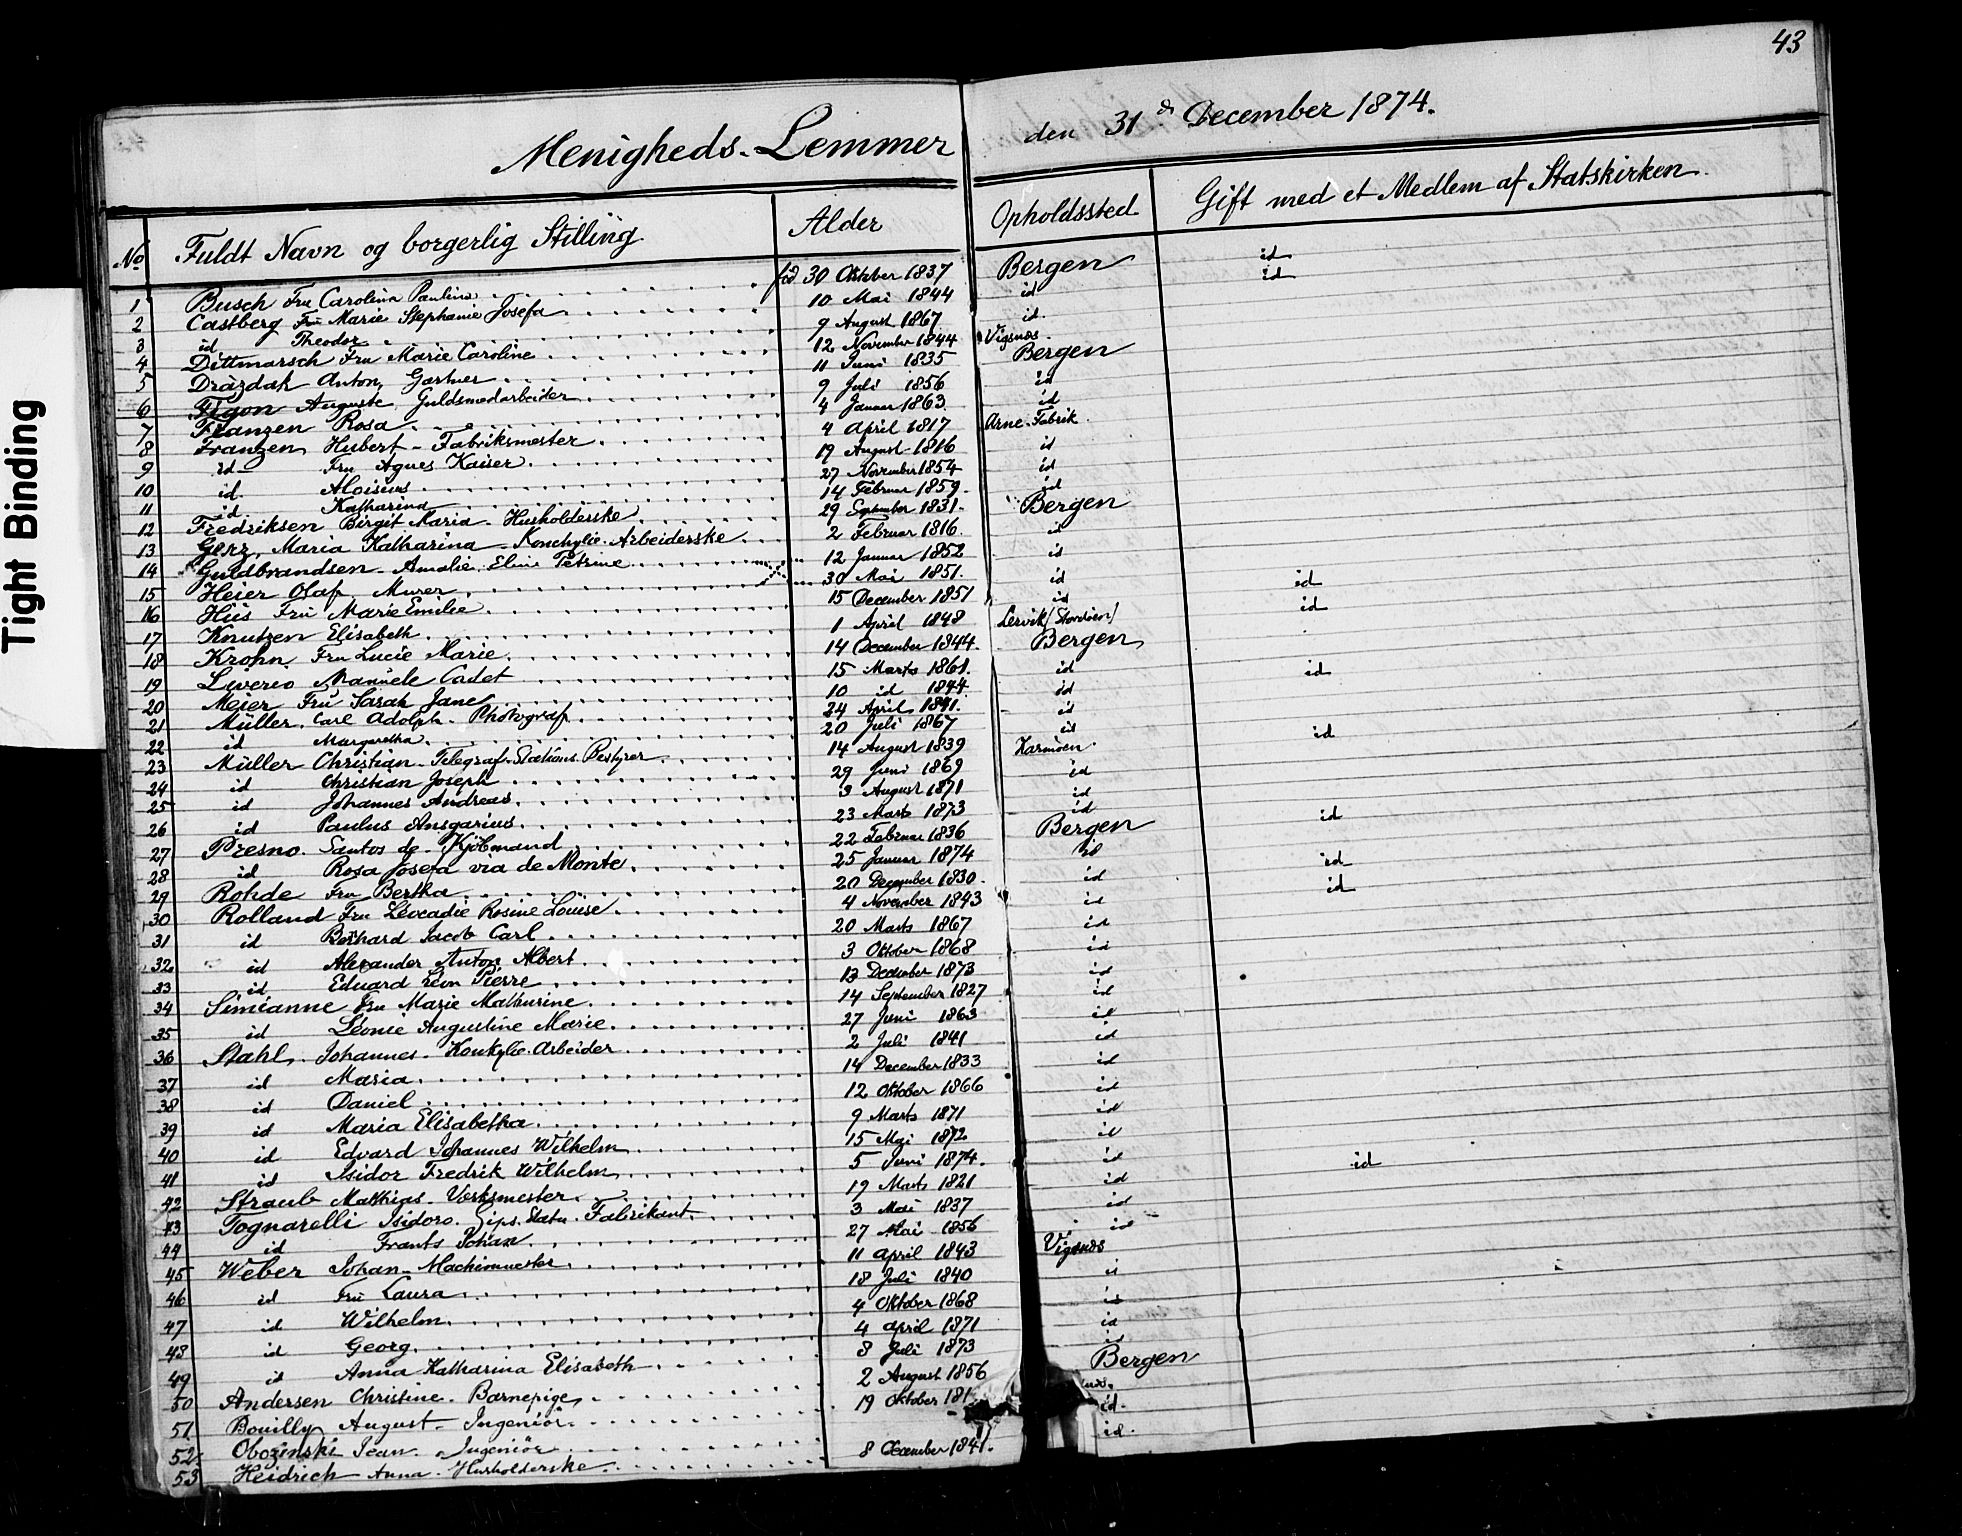 43
Menigheds-Lemmer den 31 d December 1874.
No Fuldt Navn og borgerlig Stilling Alder Opholdssted Gift med et Medlem af Statskirken
1 Busch Fru Carolina Paulina fød 30 Oktober 1837 Bergen id
2 Castberg Fru Marie Stephanie Josefa 10 Mai 1844 id id
3 id Theodor 9 August 1867 id
4 Dittmarsch Fru Marie Caroline 12 November 1844 Vigsnæs
5 Drazdak Anton, Gartner 11 Juni 1835 Bergen
6 Figon Auguste Guldsmedarbeider 9 Juli 1856 id
7 Franzen Rosa 4 Januar 1863 id
8 Franzen Hubert - Fabriksmester 4 April 1817 Arne-Fabrik
9 id Fru Agnes Kaiser 19 August 1816 id
10 id Aloisius 27 November 1854 id
11 id Katharina 14 Februar 1859 id
12 Fredriksen Birgit Maria - Husholderske 29 September 1831 Bergen
13 Gerz, Maria Katharina - Konchylie-Arbeiderske 2 Februar 1816 id
14 Guldbrandsen - Amalie Eline Petrine 12 Januar 1852 id
15 Heier Olaf, Murer 30 Mai 1851 id id
16 Hüs Fru Marie Emilie 15 December 1851 id id
17 Knutzen Elisabeth 1 April 1848 Lervik (Stordøen)
18 Krohn Fru Lucie Marie 14 December 1844 Bergen
19 Liverio Manuele Cadet 15 Marts 1861 id
20 Meier Fru Sarah Jane 10 id 1844 id id
21 Müller Carl Adolph - Photograf 24 April 1841 id
22 id Margaretha 20 Juli 1867 id
23 Müller Christian - Telegraf-Stations Bestyrer 14 August 1839 Karmøen id
24 id Christian Joseph 29 Juni 1869 id
25 id Johannes Andreas 3 August 1871 id
26 id Paulus Ansgarius 23 Marts 1873 id
27 Presno Santos de - Kjöbmand 22 Februar 1836 Bergen id
28 id Rosa Josefa via de Monte 25 Januar 1874 id
29 Rohde Fru Bertha 20 December 1830 id id
30 Rolland Fru Léocadie Rosine Louise 4 November 1843 id id
31 id Bernhard Jacob Carl 20 Marts 1867 id
32 id Alexander Anton Albert 3 Oktober 1868 id
33 id Eduard Léon Pierre 13 December 1873 id
34 Simianne Fru Marie Mathurine 14 September 1827 id
35 id Léonie Augustine Marie 27 Juni 1863 id
36 Stahl Johannes - Konkylie-Arbeider 2 Juli 1841 id
37 id Maria 14 December 1833 id
38 id Daniel 12 Oktober 1866 id
39 id Maria Elisabetha 9 Marts 1871 id
40 id Edvard Johannes Wilhelm 15 Mai 1872 id
41 id Isidor Fredrik Wilhelm 5 Juni 1874 id
42 Straub Mathias - Værksmester 19 Marts 1821 id id
43 Tognarelli Isidoro - Gips-Statu-Fabrikant 3 Mai 1837 id
44 id Frants Johan 27 Mai 1856 id
45 Weber Johan - Machinmester 11 April 1843 Vigsnæs
46 id Fru Laura 18 Juli 1840 id
47 id Wilhelm 4 Oktober 1868 id
48 id Georg 4 April 1871 id
49 id Anna Katharina Elisabeth 8 Juli 1873 id
50 Andersen Christine - Barnepige 2 August 1856 Bergen
51 Bouilly August - Ingeniör 19 Oktober
52 Obozinski Jean - Ingeniör id
53 Heidrich Anna - Husholderske 8 December 1841 id
Tight Binding